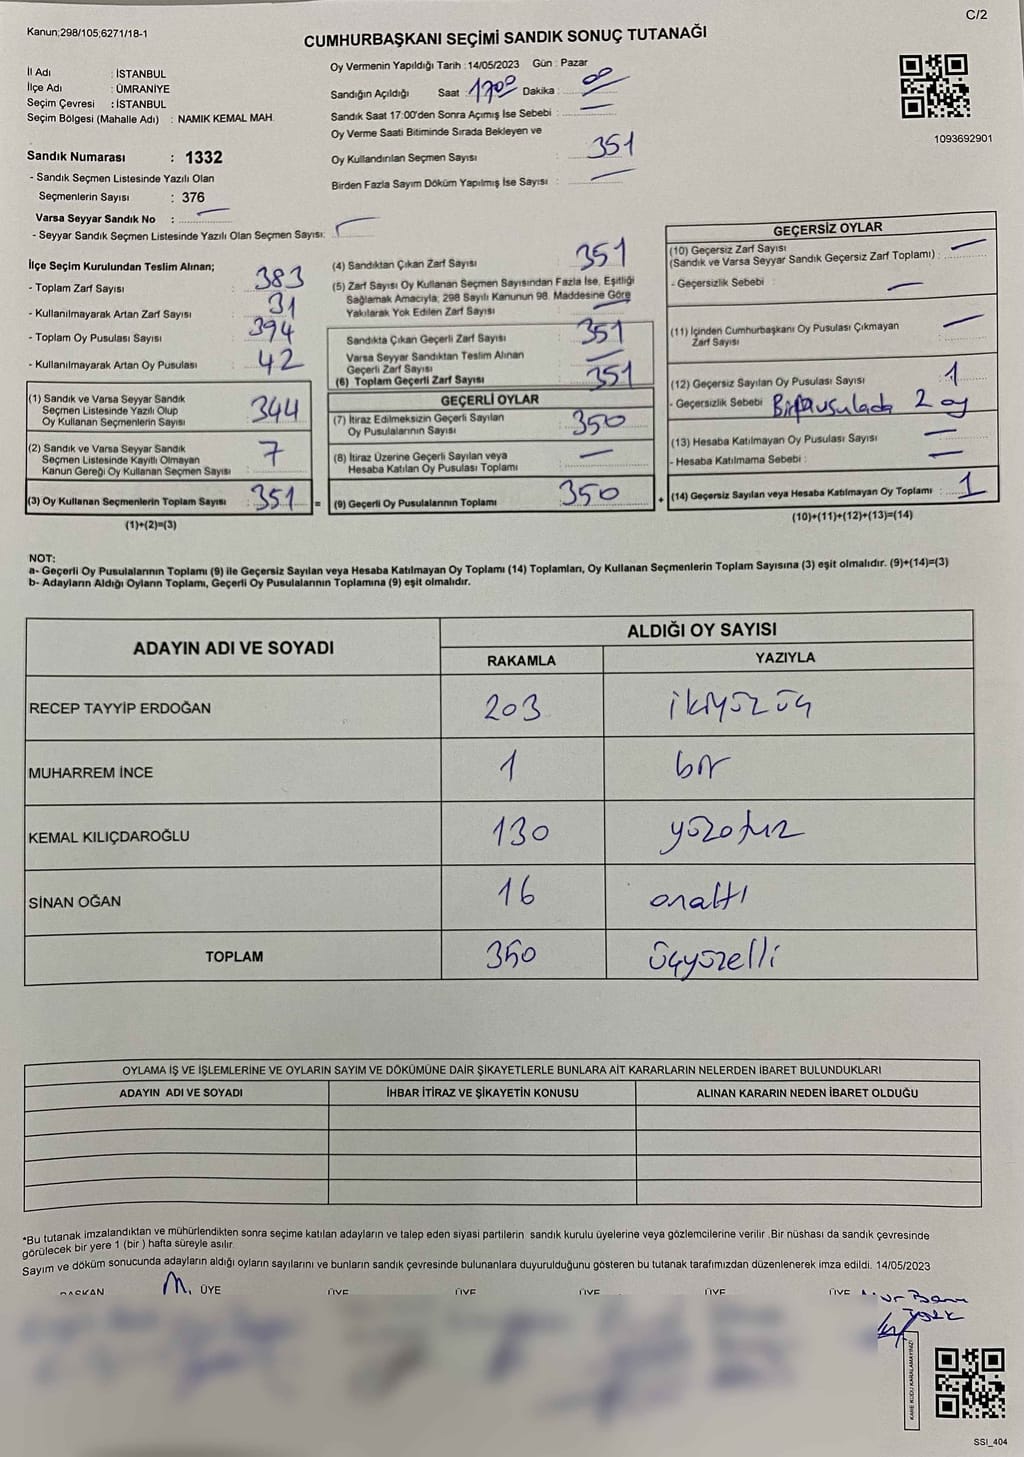 C/2
Kanun;298/105;6271/18-1
CUMHURBAŞKANI SEÇİMİ SANDIK SONUÇ TUTANAĞI
İl Adı : İSTANBUL
İlçe Adı : ÜMRANİYE
Seçim Çevresi : İSTANBUL
Seçim Bölgesi (Mahalle Adı) : NAMIK KEMAL MAH.
Sandık Numarası : 1332
- Sandık Seçmen Listesinde Yazılı Olan
Seçmenlerin Sayısı : 376
Varsa Seyyar Sandık No : —
- Seyyar Sandık Seçmen Listesinde Yazılı Olan Seçmen Sayısı:
Oy Vermenin Yapıldığı Tarih : 14/05/2023 Gün : Pazar
Sandığın Açıldığı Saat : 1700 Dakika : 00
Sandık Saat 17:00'den Sonra Açımış İse Sebebi : —
Oy Verme Saati Bitiminde Sırada Bekleyen ve
Oy Kullandırılan Seçmen Sayısı : 351
Birden Fazla Sayım Döküm Yapılmış İse Sayısı : —
1093692901
İlçe Seçim Kurulundan Teslim Alınan;
- Toplam Zarf Sayısı : 383
- Kullanılmayarak Artan Zarf Sayısı : 31
- Toplam Oy Pusulası Sayısı : 394
- Kullanılmayarak Artan Oy Pusulası : 42
(1) Sandık ve Varsa Seyyar Sandık
Seçmen Listesinde Yazılı Olup
Oy Kullanan Seçmenlerin Sayısı : 344
(2) Sandık ve Varsa Seyyar Sandık
Seçmen Listesinde Kayıtlı Olmayan
Kanun Gereği Oy Kullanan Seçmen Sayısı : 7
(3) Oy Kullanan Seçmenlerin Toplam Sayısı : 351 =
(1)+(2)=(3)
(4) Sandıktan Çıkan Zarf Sayısı : 351
(5) Zarf Sayısı Oy Kullanan Seçmen Sayısından Fazla İse, Eşitliği
Sağlamak Amacıyla; 298 Sayılı Kanunun 98. Maddesine Göre
Yakılarak Yok Edilen Zarf Sayısı —
Sandıkta Çıkan Geçerli Zarf Sayısı : 351
Varsa Seyyar Sandıktan Teslim Alınan
Geçerli Zarf Sayısı : —
(6) Toplam Geçerli Zarf Sayısı : 351
GEÇERLİ OYLAR
(7) İtiraz Edilmeksizin Geçerli Sayılan
Oy Pusulalarının Sayısı : 350
(8) İtiraz Üzerine Geçerli Sayılan veya
Hesaba Katılan Oy Pusulası Toplamı : —
(9) Geçerli Oy Pusulalarının Toplamı : 350 +
GEÇERSİZ OYLAR
(10) Geçersiz Zarf Sayısı
(Sandık ve Varsa Seyyar Sandık Geçersiz Zarf Toplamı) : —
- Geçersizlik Sebebi : —
(11) İçinden Cumhurbaşkanı Oy Pusulası Çıkmayan
Zarf Sayısı : —
(12) Geçersiz Sayılan Oy Pusulası Sayısı : 1
- Geçersizlik Sebebi : Bir pusulada 2 oy
(13) Hesaba Katılmayan Oy Pusulası Sayısı : —
- Hesaba Katılmama Sebebi : —
(14) Geçersiz Sayılan veya Hesaba Katılmayan Oy Toplamı : 1
(10)+(11)+(12)+(13)=(14)
NOT:
a- Geçerli Oy Pusulalarının Toplamı (9) ile Geçersiz Sayılan veya Hesaba Katılmayan Oy Toplamı (14) Toplamları, Oy Kullanan Seçmenlerin Toplam Sayısına (3) eşit olmalıdır. (9)+(14)=(3)
b- Adayların Aldığı Oyların Toplamı, Geçerli Oy Pusulalarının Toplamına (9) eşit olmalıdır.
ADAYIN ADI VE SOYADI ALDIĞI OY SAYISI
RAKAMLA YAZIYLA
RECEP TAYYİP ERDOĞAN 203 ikiyüzüç
MUHARREM İNCE 1 bir
KEMAL KILIÇDAROĞLU 130 yüzotuz
SİNAN OĞAN 16 onaltı
TOPLAM 350 üçyüzelli
OYLAMA İŞ VE İŞLEMLERİNE VE OYLARIN SAYIM VE DÖKÜMÜNE DAİR ŞİKAYETLERLE BUNLARA AİT KARARLARIN NELERDEN İBARET BULUNDUKLARI
ADAYIN ADI VE SOYADI İHBAR İTİRAZ VE ŞİKAYETİN KONUSU ALINAN KARARIN NEDEN İBARET OLDUĞU
*Bu tutanak imzalandıktan ve mühürlendikten sonra seçime katılan adayların ve talep eden siyasi partilerin sandık kurulu üyelerine veya gözlemcilerine verilir .Bir nüshası da sandık çevresinde
görülecek bir yere 1 (bir ) hafta süreyle asılır.
Sayım ve döküm sonucunda adayların aldığı oyların sayılarını ve bunların sandık çevresinde bulunanlara duyurulduğunu gösteren bu tutanak tarafımızdan düzenlenerek imza edildi. 14/05/2023
BAŞKAN ÜYE ÜYE ÜYE ÜYE ÜYE ÜYE
KARE KODU KARALAMAYINIZ!
SSI_404